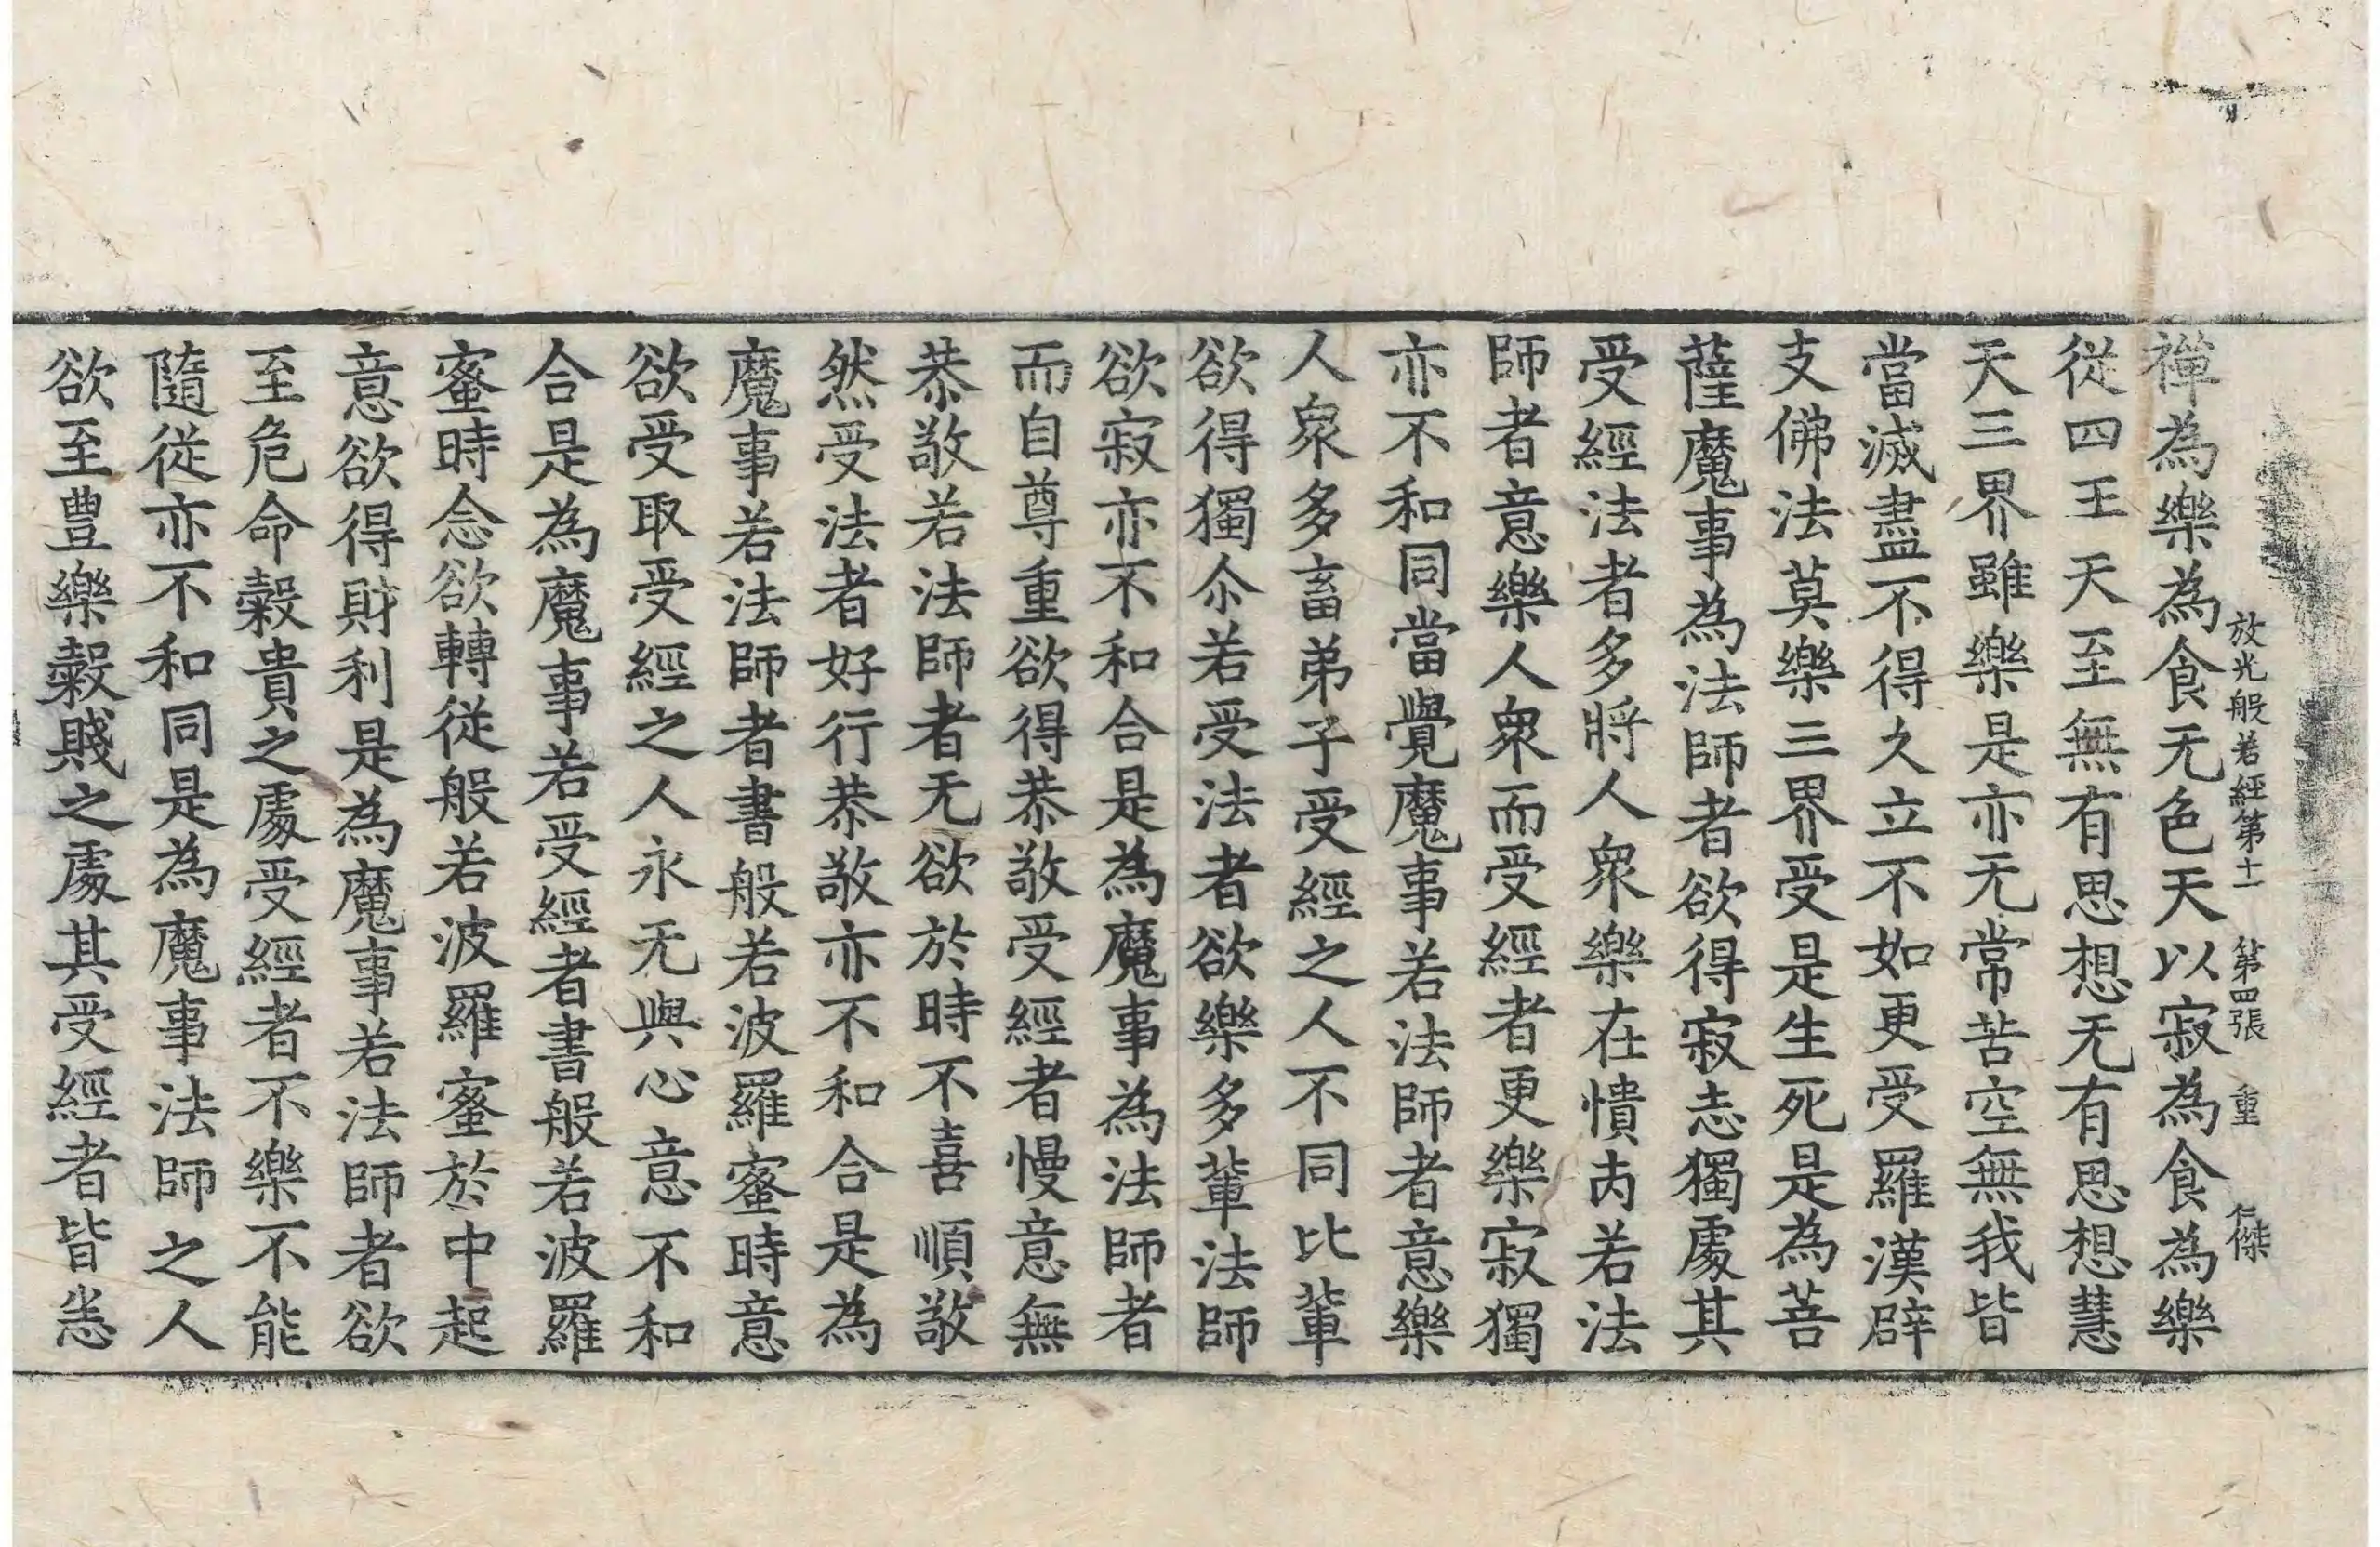 放光般若經第十一 第四張 重 仁傑
禪為樂為食无色天以寂為食為樂
從四王天天至無有思想无有思想慧
天三界雖樂是亦无常苦空無我皆
當滅盡不得久立不如更受羅漢辟
支佛法莫樂三界受是生死是為菩
薩魔事為法師者欲得寂志獨處其
受經法者多將人衆樂在憒丙若法
師者意樂人衆而受經者更樂寂獨
亦不和同當覺魔事若法師者意樂
人衆多畜弟子受經之人不同比輩
欲得獨尒若受法者欲樂多輩法師
欲寂亦不和合是為魔事為法師者
而自尊重欲得恭敬受經者慢意無
恭敬若法師者无欲於時不喜順敬
然受法者好行恭敬亦不和合是為
魔事若法師者書般若波羅蜜時意
欲受取受經之人永无與心意不和
合是為魔事若受經者書般若波羅
蜜時念欲轉從般若波羅蜜於中起
意欲得財利是為魔事若法師者欲
至危命糓貴之處受經者不樂不能
隨從亦不和同是為魔事法師之人
欲至豊樂糓賤之處其受經者皆悉